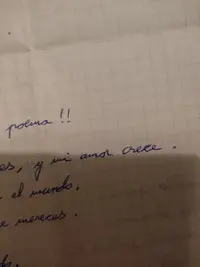 poema !!
es, y mi amor crece.
el mundo,
e mereces.